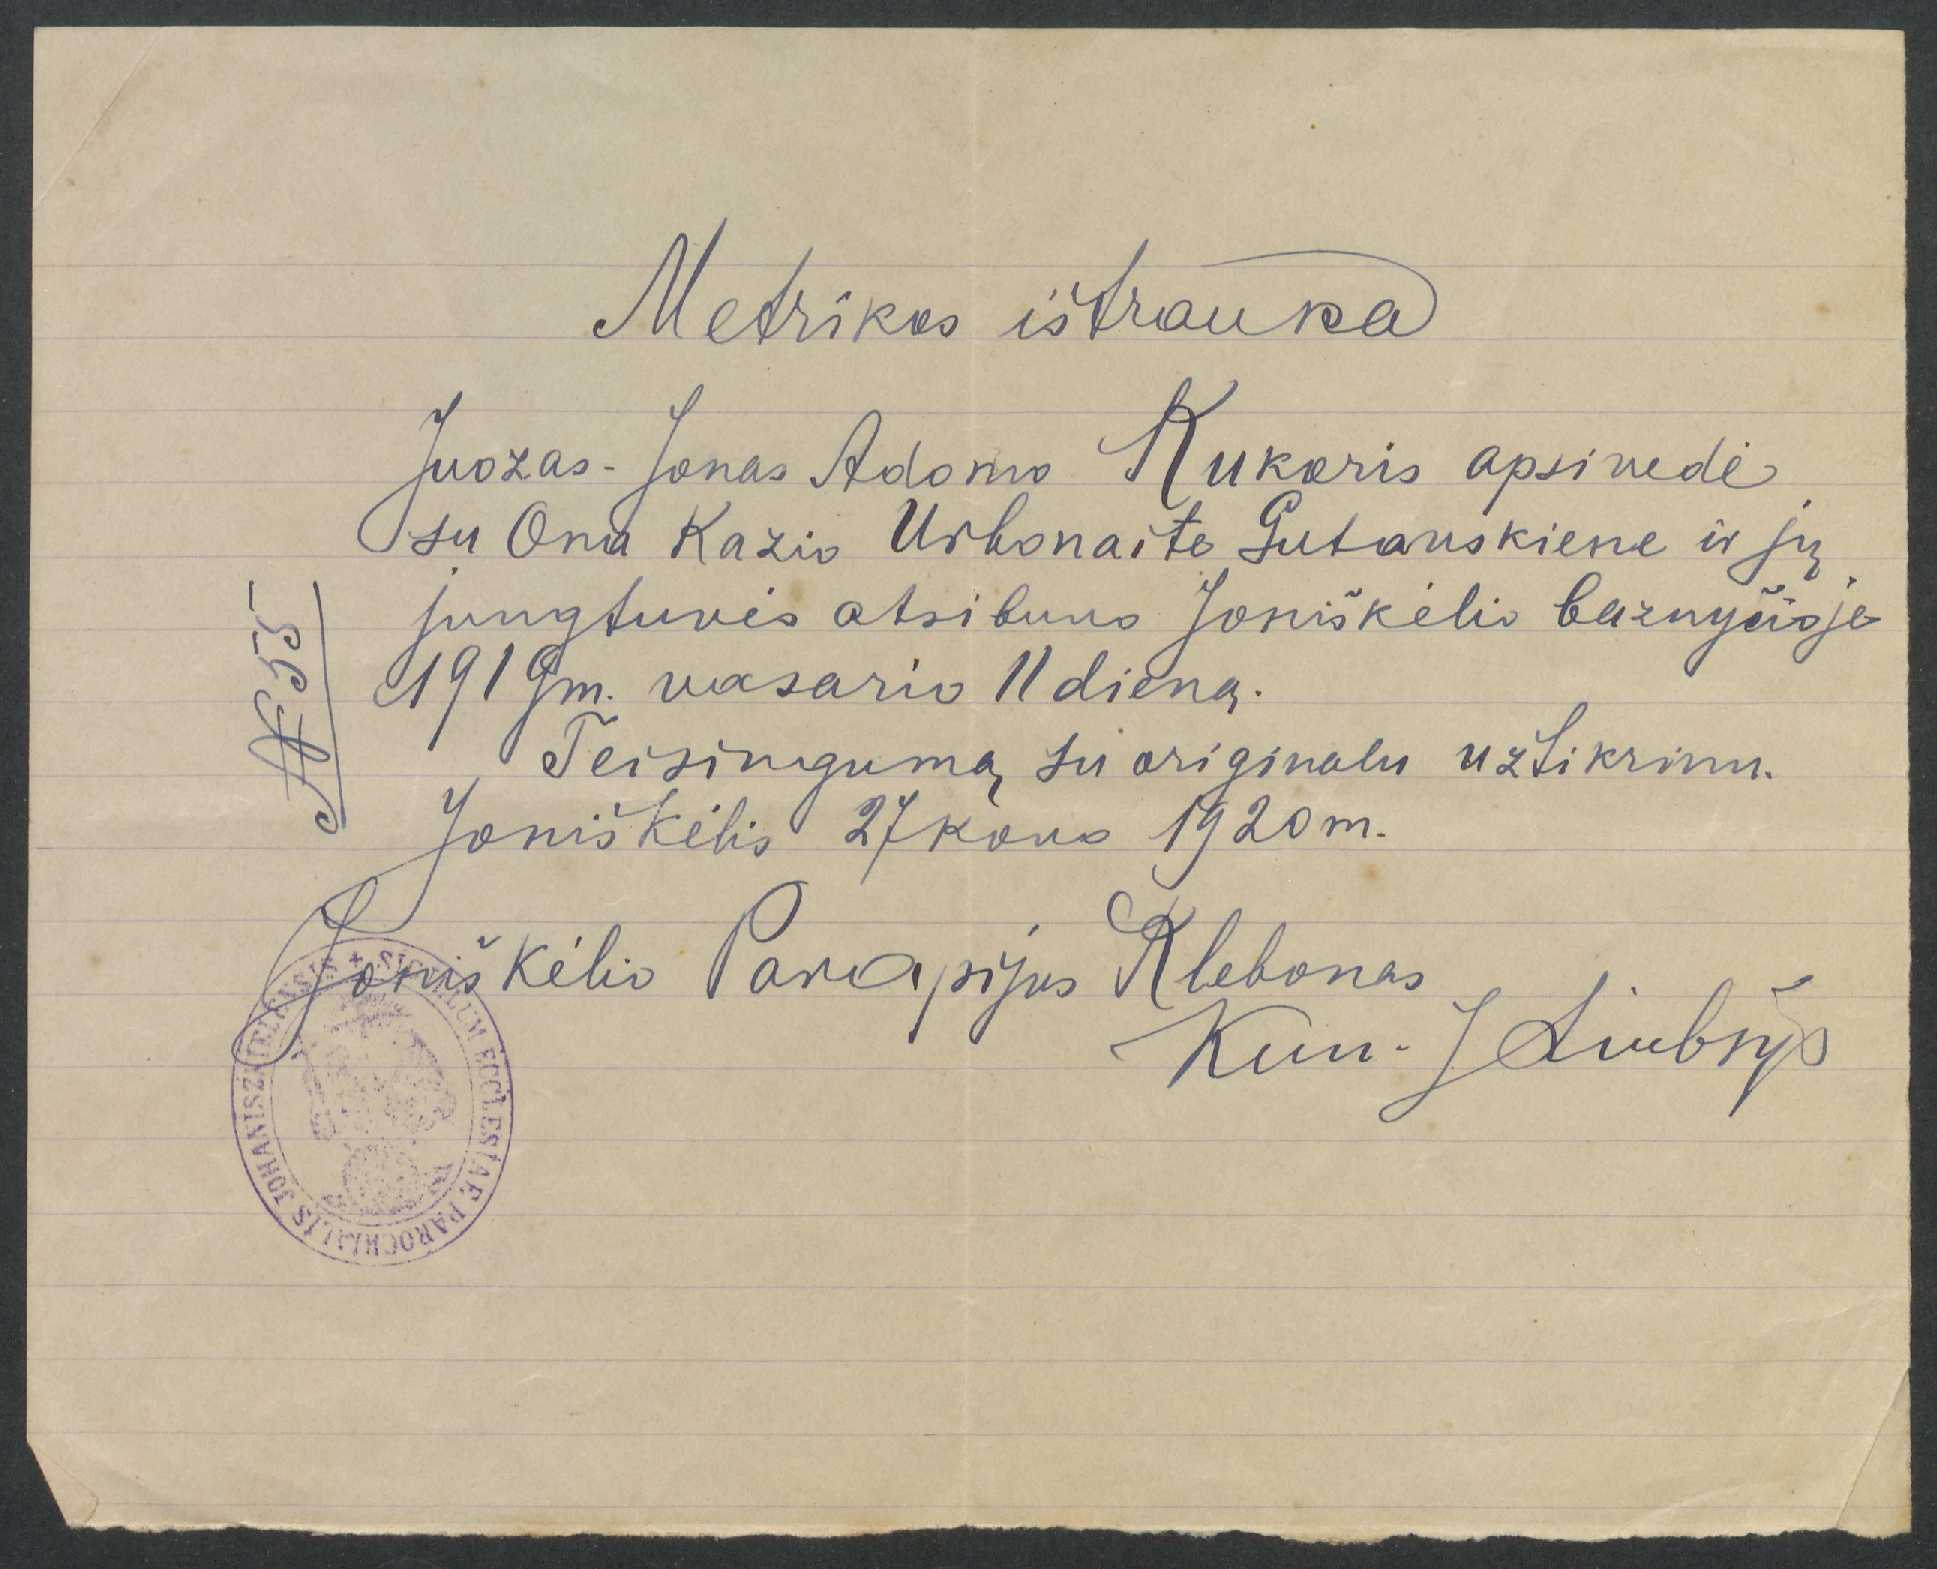 Metrikos ištrauka
Juozas-Jonas Adomo Kukoris apsivedė
su Ona Kazio Urbonaite Gutauskiene ir jų
jungtuvės atsibuvo Joniškėlio bažnyčioje
1919 m. vasario 11 dieną.
Teisingumą su originalu užtikrinu.
Joniškėlis 27 kovo 1920 m.
Joniškėlio Parapijos Klebonas
Kun. J
№ 55
SIGILLUM ECCLESIAE PAROCHIALIS JOHANISZKIELENSIS